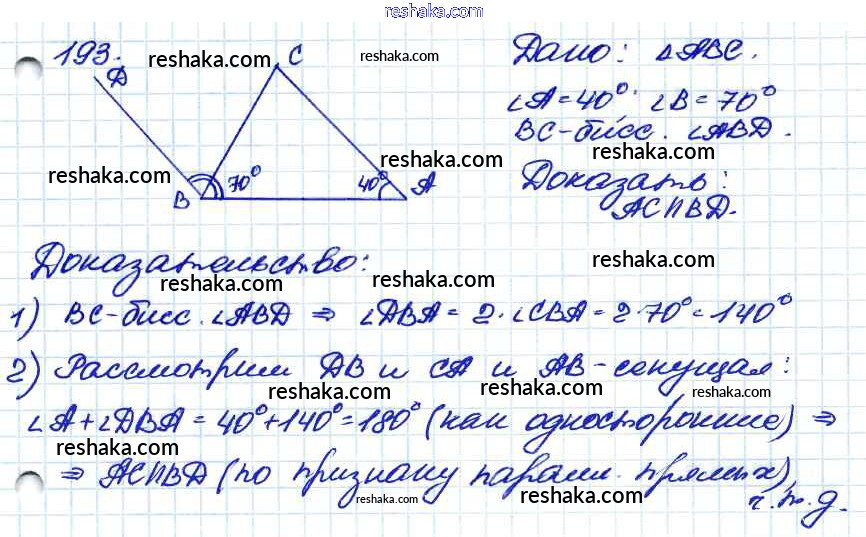 reshaka.com
193.
reshaka.com
reshaka.com
D
C
Дано: ΔABC.
∠A=40° ∠B=70°
BC-бисс. ∠ABD.
reshaka.com
reshaka.com
reshaka.com
B
70°
40°
A
Доказать:
AC||BD.
Доказательство:
reshaka.com
reshaka.com
1) BC-бисс. ∠ABD ⇒ ∠DBA = 2·∠CBA = 2·70° = 140°
reshaka.com
reshaka.com
2) Рассмотрим DB и CA и AB-секущая:
reshaka.com
reshaka.com
∠A+∠DBA = 40°+140°=180° (как односторонние) ⇒
reshaka.com
reshaka.com
⇒ AC||BD (по признаку паралл. прямых)
reshaka.com
reshaka.com
ч.т.д.